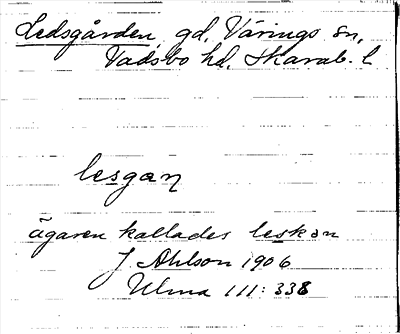 Ledsgården, gd, Värings sn,
Vadsbo hd. Skarab. l
lesgan
ägaren kallades leskan
J. Ahlson 1906
Ulma 111: 338